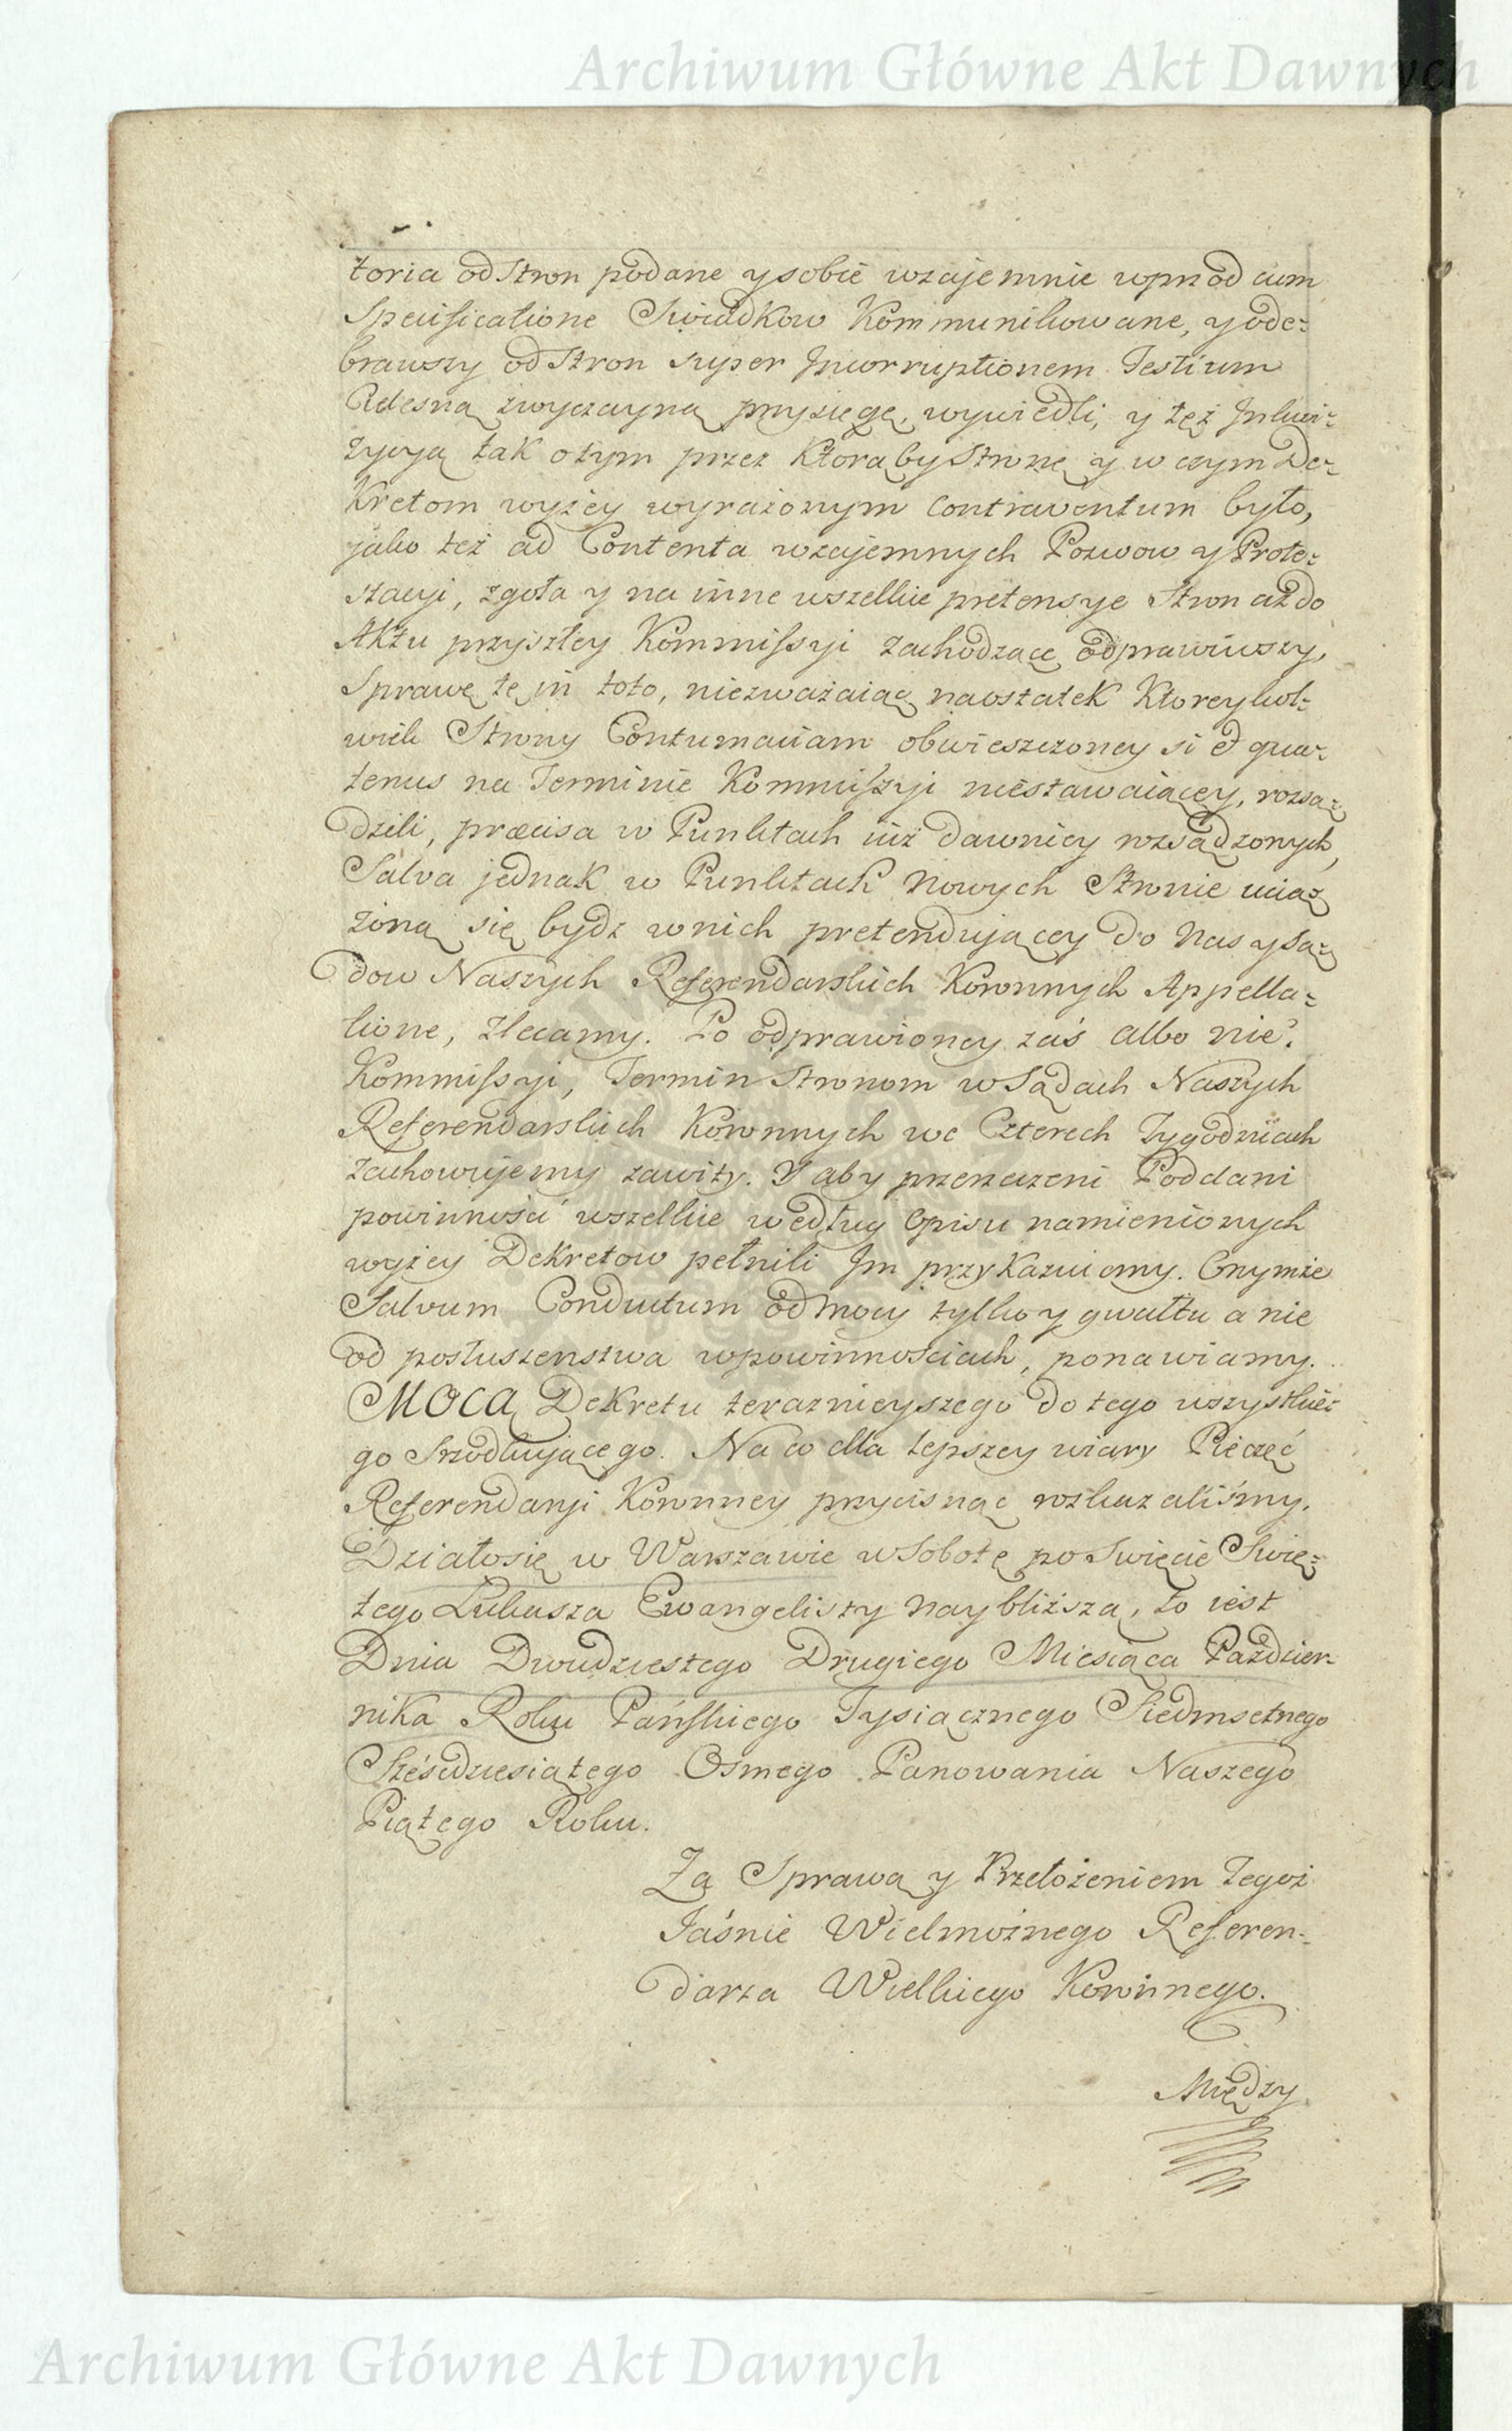 Archiwum Główne Akt Dawnych
toria od Stron podane y sobie wzaiemnie wprzod cum
Specificatione Swiadkow Kommunikowane, y ode-
brawszy od Stron super Incorruptionem Testium
Rotesną zwyczayną przysięgę, wywiedli, y też Inkwi-
zycyą tak o tym przez ktorąby Stronę y w czym De-
kretom wyżey wyrażonym contraventum było,
jako też ad Contenta wzajemnych Pozwow y Prote-
stacyi, zgoła y na inne wszelkie pretensye Stron aż do
Aktu przyszłey Kommissyi zachodzące odprawiwszy,
Sprawę tę in toto, niezważaiąc naostatek ktoreykol-
wiek Strony Contumaciam obwieszczoney si & qua-
tenus na Terminie Kommissyi niestawaiącey, rozsą-
dzili, præcisa w Punktach iuż dawniey rozsądzonych,
Salva jednak w Punktach Nowych Stronie uciąż-
żoną się bydz w nich pretendującey do Nas y Są-
dow Naszych Referendarskich Koronnych Appella-
tione, zlecamy. Po odprawioney zaś albo nie.
Kommissyi, Termin Stronom w Sądach Naszych
Referendarskich Koronnych we Czterech Tygodniach
zachowujemy zawity. Y aby przerzeczeni Poddani
powinności wszelkie według opisu namienionych
wyżey Dekretow pełnili Im przykazuiemy. Onymże
Salvum Conductum od mocy tylko y gwałtu a nie
od posłuszenstwa w powinnościach, ponawiamy.
MOCĄ Dekretu teraznieyszego do tego wszystkie-
go Srzodkującego. Na co dla lepszey wiary Pieczęć
Referendaryi Koronney przycisnąć rozkazaliśmy.
Działo się w Warszawie w Sobotę po Swięcie Swię-
tego Łukasza Ewangelisty naybliższą, to iest
Dnia Dwudziestego Drugiego Miesiąca Paździer-
nika Roku Pańskiego Tysiącznego Siedmsetnego
Sześćdziesiątego Osmego Panowania Naszego
Piątego Roku.
Za Sprawą y Przełożeniem tegoż
Jaśnie Wielmożnego Referen-
darza Wielkiego Koronnego.
Między
Archiwum Główne Akt Dawnych